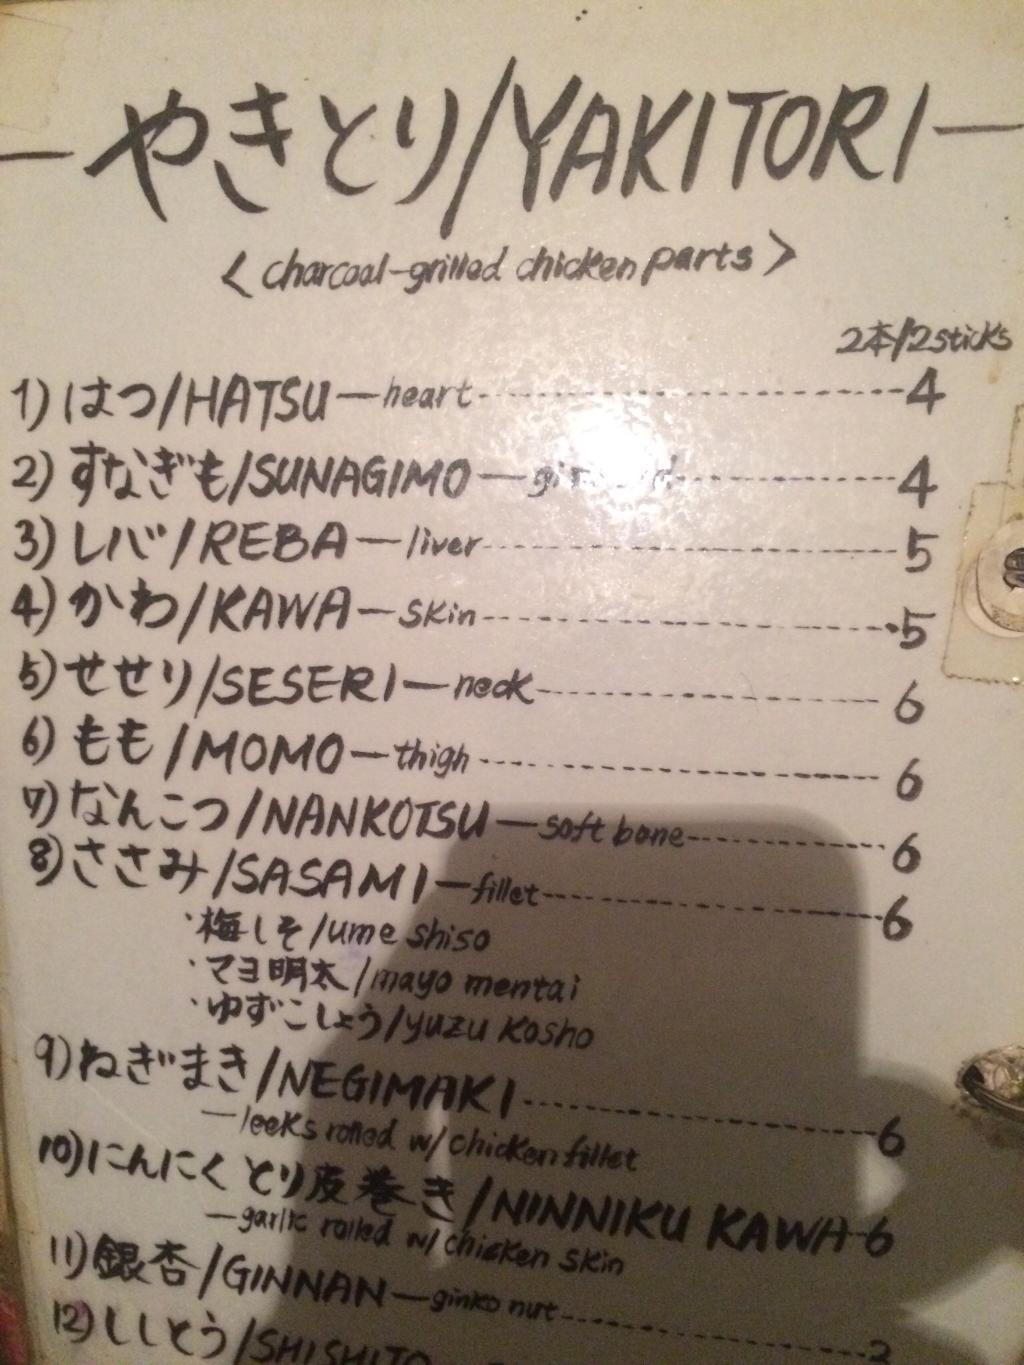 やきとり/YAKITORI
<charcoal-grilled chicken parts>
2本/2sticks
1) はつ/HATSU—heart 4
2) すなぎも/SUNAGIMO— 4
3) レバ/REBA—liver 5
4) かわ/KAWA—skin 5
5) せせり/SESERI—neck 6
6) もも/MOMO—thigh 6
7) なんこつ/NANKOTSU—soft bone 6
8) ささみ/SASAMI—fillet 6
・梅しそ/ume shiso
・マヨ明太/mayo mentai
・ゆずこしょう/yuzu kosho
9) ねぎまき/NEGIMAKI 6
—leeks rolled w/ chicken fillet
10) にんにく とり皮巻き/NINNIKU KAWA 6
—garlic rolled w/ chicken skin
11) 銀杏/GINNAN—ginko nut 3
12) ししとう/SHISHITO